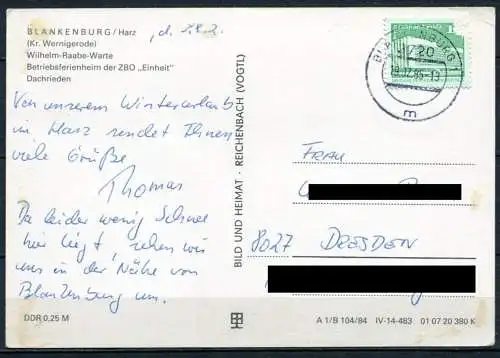 BLANKENBURG/Harz
(Kr. Wernigerode)
Wilhelm-Raabe-Warte
Betriebsferienheim der ZBO „Einheit"
Dachrieden
Von unserem Winterurlaub
im Harz sendet Ihnen
viele Grüße
Thomas
Da leider wenig Schnee
hier liegt, sehen wir
uns in der Nähe von
Blankenburg um.
DDR 0,25 M
BILD UND HEIMAT · REICHENBACH (VOGTL)
BLANKENBURG 1
720
m
FRAU
8027 DRESDEN
A 1/B 104/84 IV-14-483 01 07 20 380 K